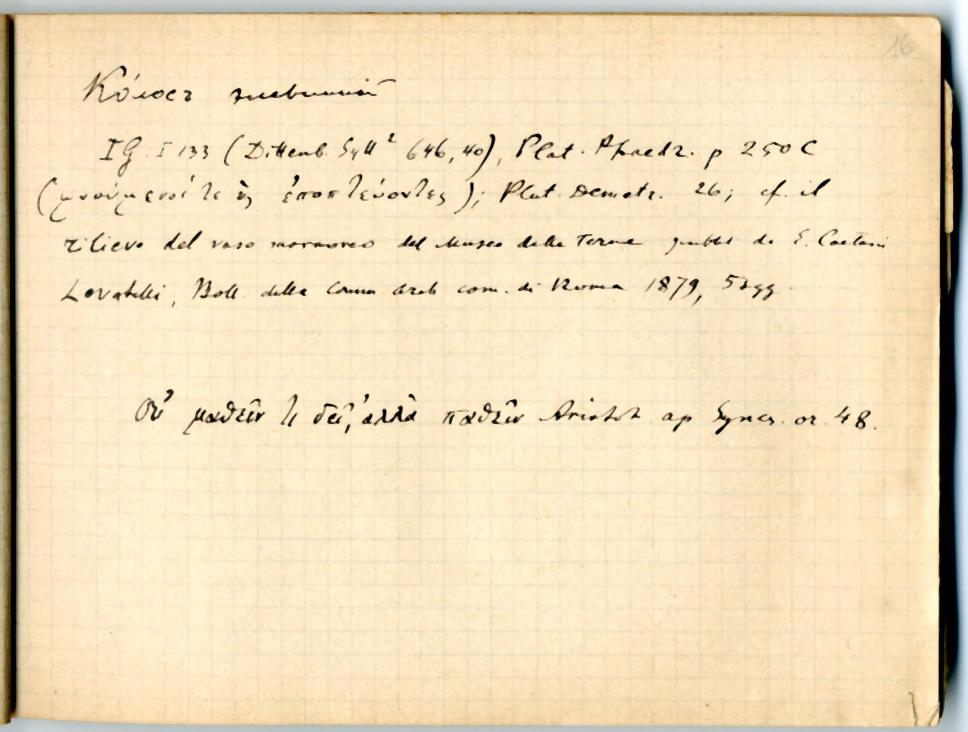 16
IG. I 133 (Dittenb. Syll² 646, 40), Plat. Phaedr. p 250 C
(μυούμενοί τε ἐποπτεύοντες); Plut. Demetr. 26; cf. il
rilievo del vaso marmoreo del Museo delle Terme pubbl da E. Caetani
Lovatelli, Boll. della Comm arch com. di Roma 1879, 5sgg.
Οὐ μαθεῖν τι δεῖ, ἀλλὰ παθεῖν Aristot ap Synes. or. 48.